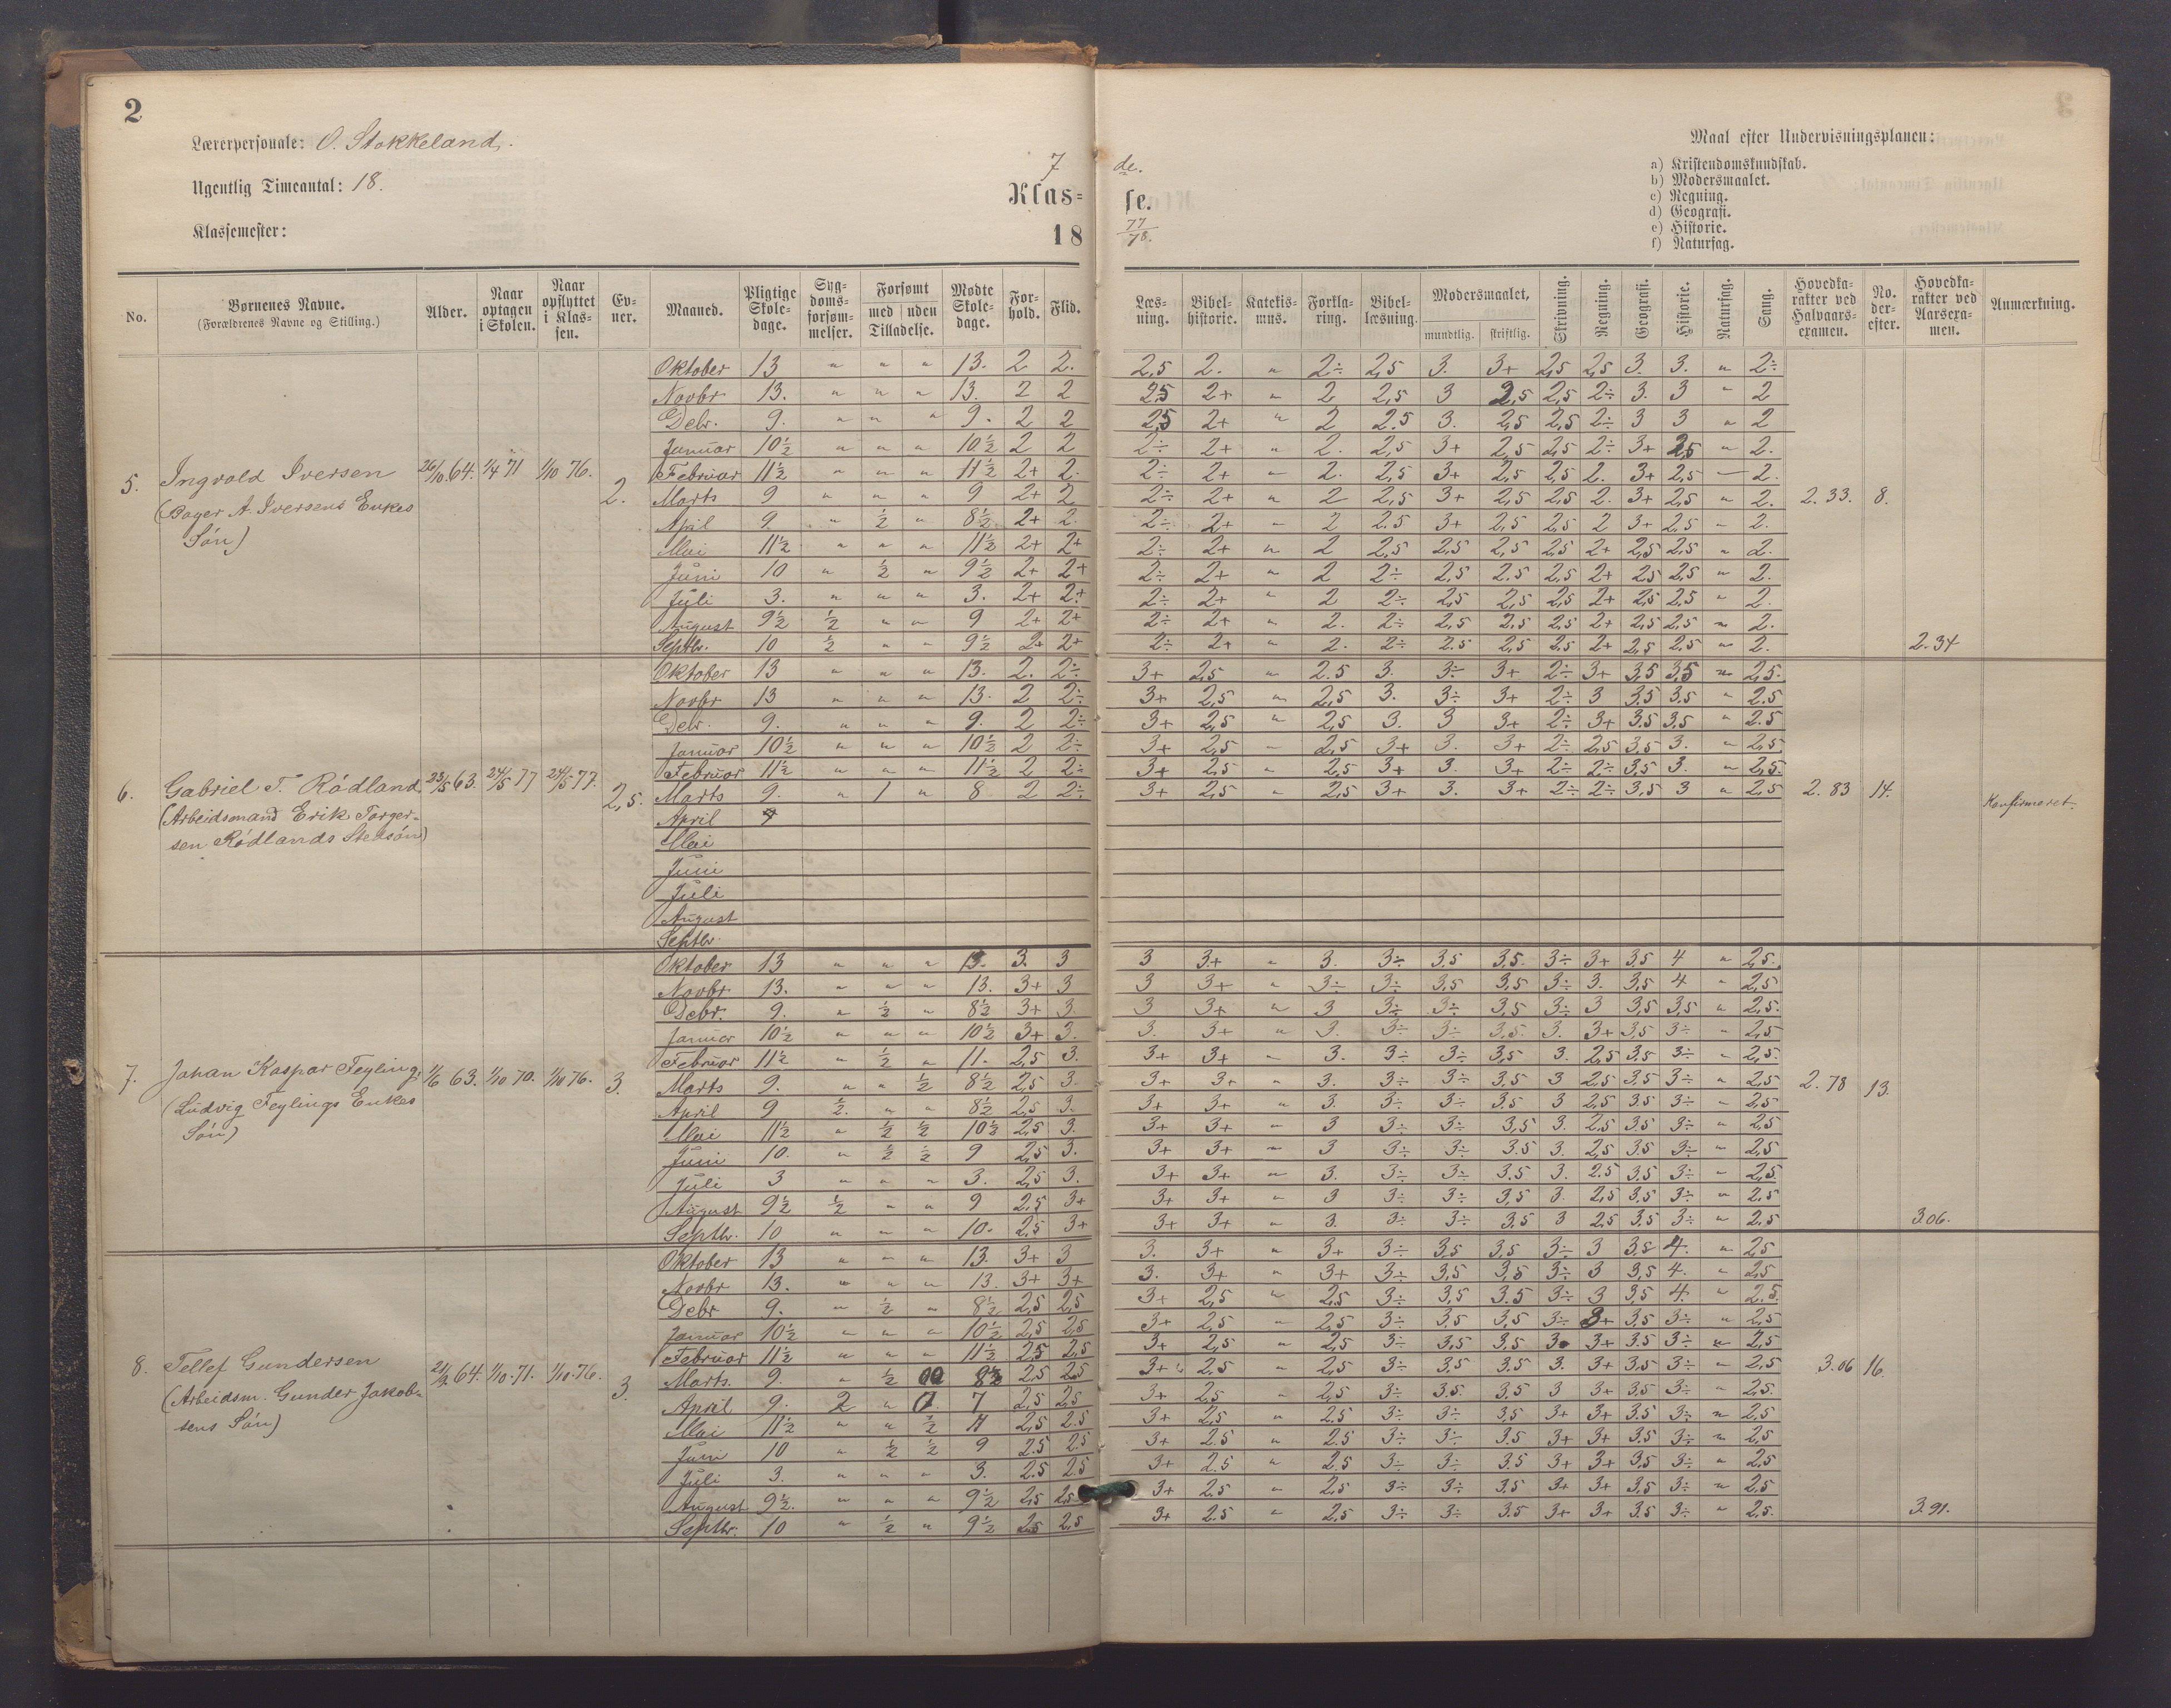 2
Lærerpersonale: O. Stokkeland.
Ugentlig Timeantal: 18.
Klassemester:
7de.
Klas= se.
18 77/78.
Maal efter Undervisningsplanen:
a) Kristendomskundskab.
b) Modersmaalet.
c) Regning.
d) Geografi.
e) Historie.
f) Naturfag.
No. | Børnenes Navne. (Forældrenes Navne og Stilling.) | Alder. | Naar optagen i Skolen. | Naar opflyttet i Klassen. | Evner. | Maaned. | Pligtige Skoledage. | Sygdomsforsømmelser. | Forsømt med | uden Tilladelse. | Mødte Skoledage. | Forhold. | Flid. | Læsning. | Bibelhistorie. | Katekismus. | Forklaring. | Bibellæsning. | Modersmaalet, mundtlig. | skriftlig. | Skrivning. | Regning. | Geografi. | Historie. | Naturfag. | Sang. | Hovedkarakter ved Halvaarsexamen. | No. derefter. | Hovedkarakter ved Aarsexamen. | Anmærkning.
5. Ingvald Iversen 26/10 64. 1/4 71 1/10 76. 2. 2.33. 8. 2.34
(Bager A. Iversens Enkes
Søn)
Oktober 13 " " " 13. 2 2. 2,5 2. " 2÷ 2,5 3. 3+ 2,5 2,5 3. 3. " 2÷
Novbr 13. " " " 13. 2 2 2,5 2+ " 2 2,5 3 2,5 2,5 2÷ 3. 3 " 2
Debr. 9. " " " 9. 2 2 2,5 2+ " 2 2.5 3. 2,5 2,5 2÷ 3 3 " 2
Januar 10½ " " " 10½ 2 2 2÷ 2+ " 2. 2,5 3+ 2,5 2,5 2÷ 3+ 2,5 " 2.
Februar 11½ " " " 11½ 2+ 2. 2÷ 2+ " 2. 2,5 3+ 2,5 2,5 2. 3+ 2,5 " 2.
Marts 9 " " " 9 2+ 2 2÷ 2+ " 2 2,5 3+ 2,5 2,5 2. 3+ 2,5 " 2.
April 9. " ½ " 8½ 2+ 2. 2÷ 2+ " 2 2.5 3+ 2,5 2,5 2 3+ 2,5 " 2.
Mai 11½ " " " 11½ 2+ 2+ 2÷ 2+ " 2 2,5 2,5 2,5 2,5 2+ 2,5 2,5 " 2.
Juni 10 " ½ " 9½ 2+ 2+ 2÷ 2+ " 2 2÷ 2,5 2.5 2,5 2+ 2,5 2,5 " 2.
Juli 3. " " " 3. 2+ 2+ 2÷ 2+ " 2 2÷ 2,5 2,5 2,5 2+ 2,5 2,5 " 2.
August 9½ ½ " " 9 2+ 2+ 2÷ 2+ " 2. 2÷ 2,5 2,5 2,5 2+ 2,5 2,5 " 2.
Septbr. 10 ½ " " 9½ 2+ 2+ 2÷ 2+ " 2. 2÷ 2.5 2,5 2,5 2+ 2,5 2,5 " 2.
6. Gabriel T. Rødland 23/5 63. 24/5 77 24/5 77. 2,5. 2.83 14. Konfirmeret.
(Arbeidsmand Erik Torger-
sen Rødlands Stedsøn)
Oktober 13 " " " 13. 2. 2÷ 3+ 2,5 " 2.5 3. 3÷ 3+ 2÷ 3+ 3,5 3,5 " 2,5.
Novbr 13 " " " 13. 2 2÷ 3+ 2,5 " 2,5 3. 3÷ 3+ 2÷ 3 3,5 3,5 " 2.5
Debr. 9. " " " 9. 2 2÷ 3+ 2,5 " 2,5 3. 3 3+ 2÷ 3+ 3,5 3,5 " 2.5
Januar 10½ " " " 10½ 2 2÷ 3+ 2,5 " 2,5 3+ 3. 3+ 2÷ 2,5 3,5 3. " 2,5
Februar 11½ " " " 11½ 2 2÷ 3+ 2,5 " 2,5 3+ 3. 3+ 2÷ 2÷ 3,5 3. " 2,5.
Marts 9. " 1 " 8 2 2÷ 3+ 2,5 " 2,5 3+ 3. 3+ 2÷ 2÷ 3,5 3 " 2,5
April
Mai
Juni
Juli
August
Septbr.
7. Johan Kaspar Feyling, 1/6 63. 1/10 70. 1/10 76. 3. 2.78 13. 3.06.
(Ludvig Feylings Enkes
Søn)
Oktober 13 " " " 13. 3. 3 3 3+ " 3. 3÷ 3,5 3,5. 3÷ 3+ 3,5 4 " 2,5.
Novbr 13. " " " 13. 3+ 3 3 3+ " 3÷ 3÷ 3,5 3,5 3÷ 3. 3,5 4 " 2,5
Debr. 9. " ½ " 8½ 3+ 3. 3 3+ " 3 3÷ 3÷ 3,5 3÷ 3 3,5 3,5 " 2,5.
Januar 10½ " " " 10½ 3+ 3. 3. 3+ " 3. 3÷ 3÷ 3,5. 3. 3+ 3,5 3÷ " 2,5
Februar 11½ " ½ " 11. 2,5 3. 3+ 3+ " 3. 3÷ 3÷ 3,5 3. 2,5 3,5 3÷ " 2,5.
Marts 9. " " ½ 8½ 2,5 3. 3+ 3+ " 3. 3÷ 3÷ 3,5 3 2,5 3,5 3÷ " 2,5
April 9 ½. " " 8½ 2,5 3. 3+ 3+ " 3. 3÷ 3÷ 3,5 3 2,5 3.5 3÷ " 2,5
Mai 11½ " ½ ½ 10½ 2,5 3. 3+ 3+ " 3 3÷ 3÷ 3,5 3. 2,5 3,5 3÷ " 2,5
Juni 10. " ½ ½ 9 2,5 3. 3+ 3+ " 3 3÷ 3÷ 3.5 3. 2,5 3.5 3÷ " 2,5
Juli 3 " " " 3. 2,5 3. 3+ 3+ " 3. 3÷ 3÷ 3.5 3. 2.5 3,5 3÷ " 2,5
August 9½ ½ " " 9 2,5 3+ 3+ 3+ " 3 3÷ 3÷ 3,5 3. 2,5 3,5 3÷ " 2.5
Septbr. 10 " " " 10. 2,5 3+ 3+ 3+ " 3. 3÷ 3÷ 3,5 3 2,5 3,5 3÷ " 2.5
8. Tellef Gundersen 64. 1/10 71. 1/10 76. 3. 3.06 16. 3.91.
(Arbeidsm. Gunder Jakob-
sens Søn)
Oktober 13 " " " 13. 3+ 3 3. 3+ " 3+ 3÷ 3,5 3,5 3÷ 3 3,5 4. " 2,5
Novbr 13. " " " 13. 3+ 3+ 3. 3+ " 3+ 3÷ 3,5 3,5 3÷ 3 3,5 4. " 2,5
Debr 9. " ½ " 8½ 2,5 2,5 3+ 2,5 " 2,5 3÷ 3,5 3.5 3÷ 3 3,5 4. " 2.5.
Januar 10½ " " " 10½ 2,5 2,5 3+ 2,5 " 2,5 3÷ 3,5 3,5 3÷ 3+ 3,5 3÷ " 2,5
Februar 11½ " " " 11½ 2,5 2,5 3+ 2,5 " 2,5 3÷ 3,5 3,5 3. 3+ 3.5 3÷ " 2,5
Marts. 9. " ½ 8½ 2,5 2,5 3+ 2,5 " 2,5 3÷ 3,5 3.5 3. 3+ 3,5 3÷ " 2,5
April 9. 2 " 7 2,5 2,5 3+ 2,5 " 2,5 3÷ 3,5. 3.5 3 3+ 3,5 3÷ " 2,5.
Mai 11½ " " ½ 11 2,5 2.5 3+ 2,5 " 2.5 3÷ 3÷ 3,5 3+ 3+ 3.5 3÷ " 2,5
Juni 10 " ½ ½ 9 2.5 2.5 3+ 2.5 " 2.5 3÷ 3÷ 3.5 3+ 3+ 3,5 3÷ " 2,5
Juli 3. " " " 3. 2.5 2.5 3+ 2.5 " 2.5 3÷ 3÷ 3.5 3+ 3+ 3,5 3÷ " 2,5
August 9½. " " " 9½ 2,5 2,5 3+ 2.5 " 2,5 3÷ 3÷ 3.5 3+ 3+ 3,5 3÷ " 2,5
Septbr. 10 " ½ " 9½ 2,5 2,5 3+ 2.5 " 2,5 3÷ 3÷ 3.5 3+ 3+ 3.5 3÷ " 2,5.